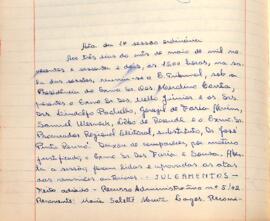 Ata da 1ª sessão ordinária
Aos três dias do mês de maio de mil no-
vecentos e sessenta e dois, às 1500 horas, na sa
la das sessões, reuniu-se o E. Tribunal, sob a
Presidência do Exmo Sr. Des. Merolino Corrêa,
presentes o Exmo Sr. Des. Mello Júnior e os Srs.
Drs. Lindolfo Padulho, Joaquim de Faria Alvim,
Samuel Werneck, Cidio de Resende e o Exmo Sr.
Procurador Regional Eleitoral, substituto, Dr. José
Pinto Renno. Deixou de comparecer, por motivo
justificado, o Exmo Sr. Des. Faria e Sousa. Aber-
ta a sessão, foram lidas e aprovadas as atas
das reuniões anteriores. - JULGAMENTOS -
Feito adiado - Recurso Administrativo nº 5/62.
Recorrente: Maria Salett Moniz Lages. Recorri-